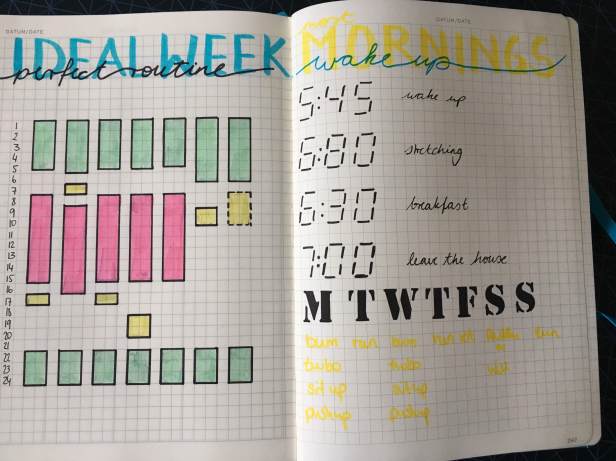 DATUM/DATE
IDEAL WEEK
perfect routine
1
2
3
4
5
6
7
8
9
10
11
12
13
14
15
16
17
18
19
20
21
22
23
24
DATUM/DATE
MORNINGS
wake up
5:45 wake up
6:00 stretching
6:30 breakfast
7:00 leave the house
M T W T F S S
bum run bum run run
tribo tribo
sit up sit up
push up push up